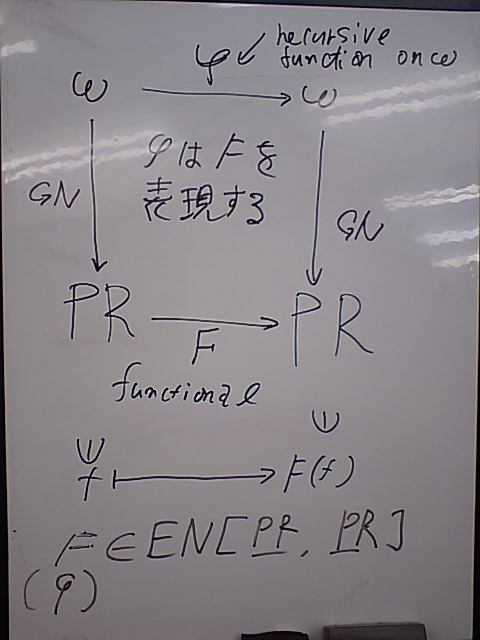 φ recursive
function on ω
ω → ω
φは F を
表現する
GN
GN
PR → PR
F
functional
f ↦ F(f)
F ∈ EN[PR, PR]
(φ)